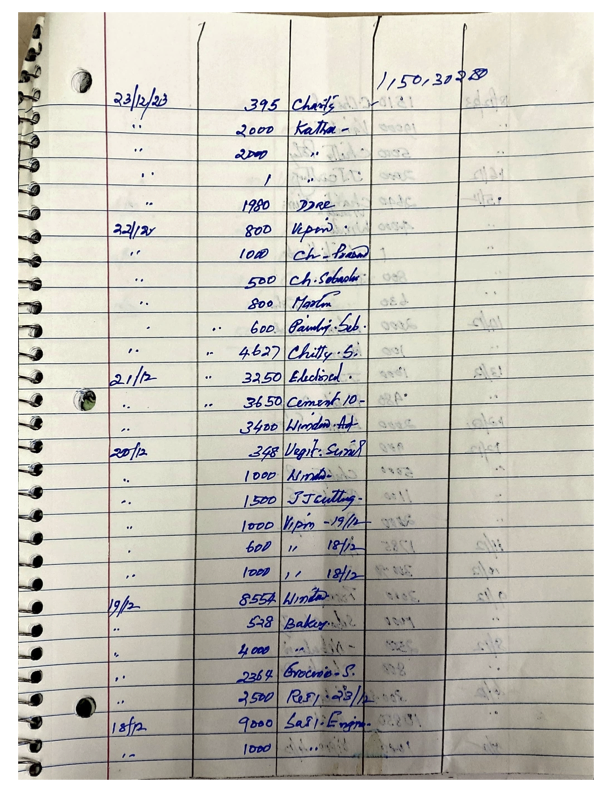 1,50,30280
23/12/23 395 Chart's
" 2000 Katha -
" 2000 "
" 1 "
" 1980 Dare
22/12 800 Vipin .
" 1000 Ch -
" 500 Ch. Sebastin
" 800 Martin
" " 600 Painting. Seb.
" " 4627 Chitty. S.
21/12 " 3250 Electrical .
" " 3650 Cement 10 -
" 3400 Window. Ad
20/12 348 Vegit. Sunil
" 1000 Window
" 1500 JJ Cutting -
" 1000 Vipin - 19/12
" 600 " 18/12
" 1000 " 18/12
19/12 8554 Window
" 528 Bakery
" 4000 "
" 2364 S.
" 2500 23/12
18/12 9000 Sasi. Engin.
" 1000 "